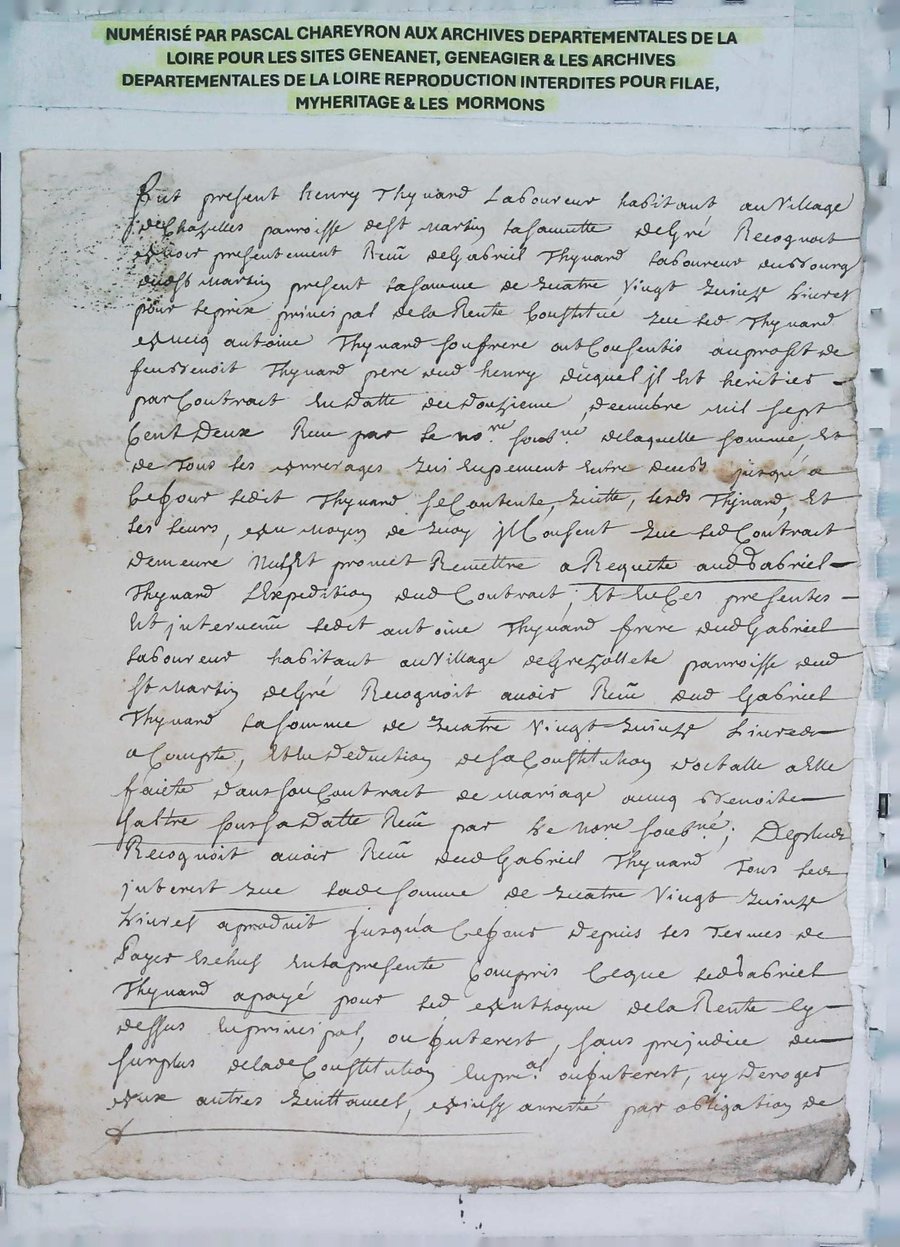 NUMÉRISÉ PAR PASCAL CHAREYRON AUX ARCHIVES DEPARTEMENTALES DE LA
LOIRE POUR LES SITES GENEANET, GENEAGIER & LES ARCHIVES
DEPARTEMENTALES DE LA LOIRE REPRODUCTION INTERDITES POUR FILAE,
MYHERITAGE & LES MORMONS
Fut present henry Thynard Laboureur habitant au Village
de Chazelles parroisse de St Martin Lasauvette de Gré Recognoit
avoir presentement Receu de Gabriel Thynard laboureur du Bourg
dud St Martin present la somme de quatre Vingt quinze Livres
pour le prix principal de la Rente Constitué que led Thynard
avecq antoine Thynard son frere ont Consentis au profit de
feu Benoit Thynard pere dud henry duquel jl est heritier
par Contrat en datte du douzieme decembre mil sept
Cent Deux Receu par le no.re soub.né de laquelle somme, et
de Tous les arrerages jusqu'a
Ce jour ledit Thynard se Contente, quitte, lesds Thynard, et
les leurs, au moyen de quoy jl Consent que led Contrat
demeure Nul et promet Remettre a Requete aud Gabriel
Thynard L'Expedition dud Contrat; et en Ces presentes
est jntervenu ledit antoine Thynard frere dud Gabriel
laboureur habitant au Village de Grezollete parroisse dud
St Martin de Gré Recognoit avoir Receu dud Gabriel
Thynard la somme de quatre Vingt quinze Livres
a Compte, et en deduction de la Constitution dotalle a Elle
faicte dans son Contrat de mariage avecq Benoite
sous sa datte Receu par Le nore soubné; De plus
Recognoit avoir Receu dud Gabriel Thynard Tous les
jnterest que lade somme de quatre Vingt quinze
Livres a produit jusqu'a Ce jour depuis les Termes de
Payer Escheus en la presente Compris Ce que led Gabriel
Thynard a payé pour led de la Rente Cy
dessus en principal, ou jnterest, sans prejudice du
surplus de lade Constitution en prnal ou jnterest, ny deroger
aux autres quittances, ainsy arresté par obligation de